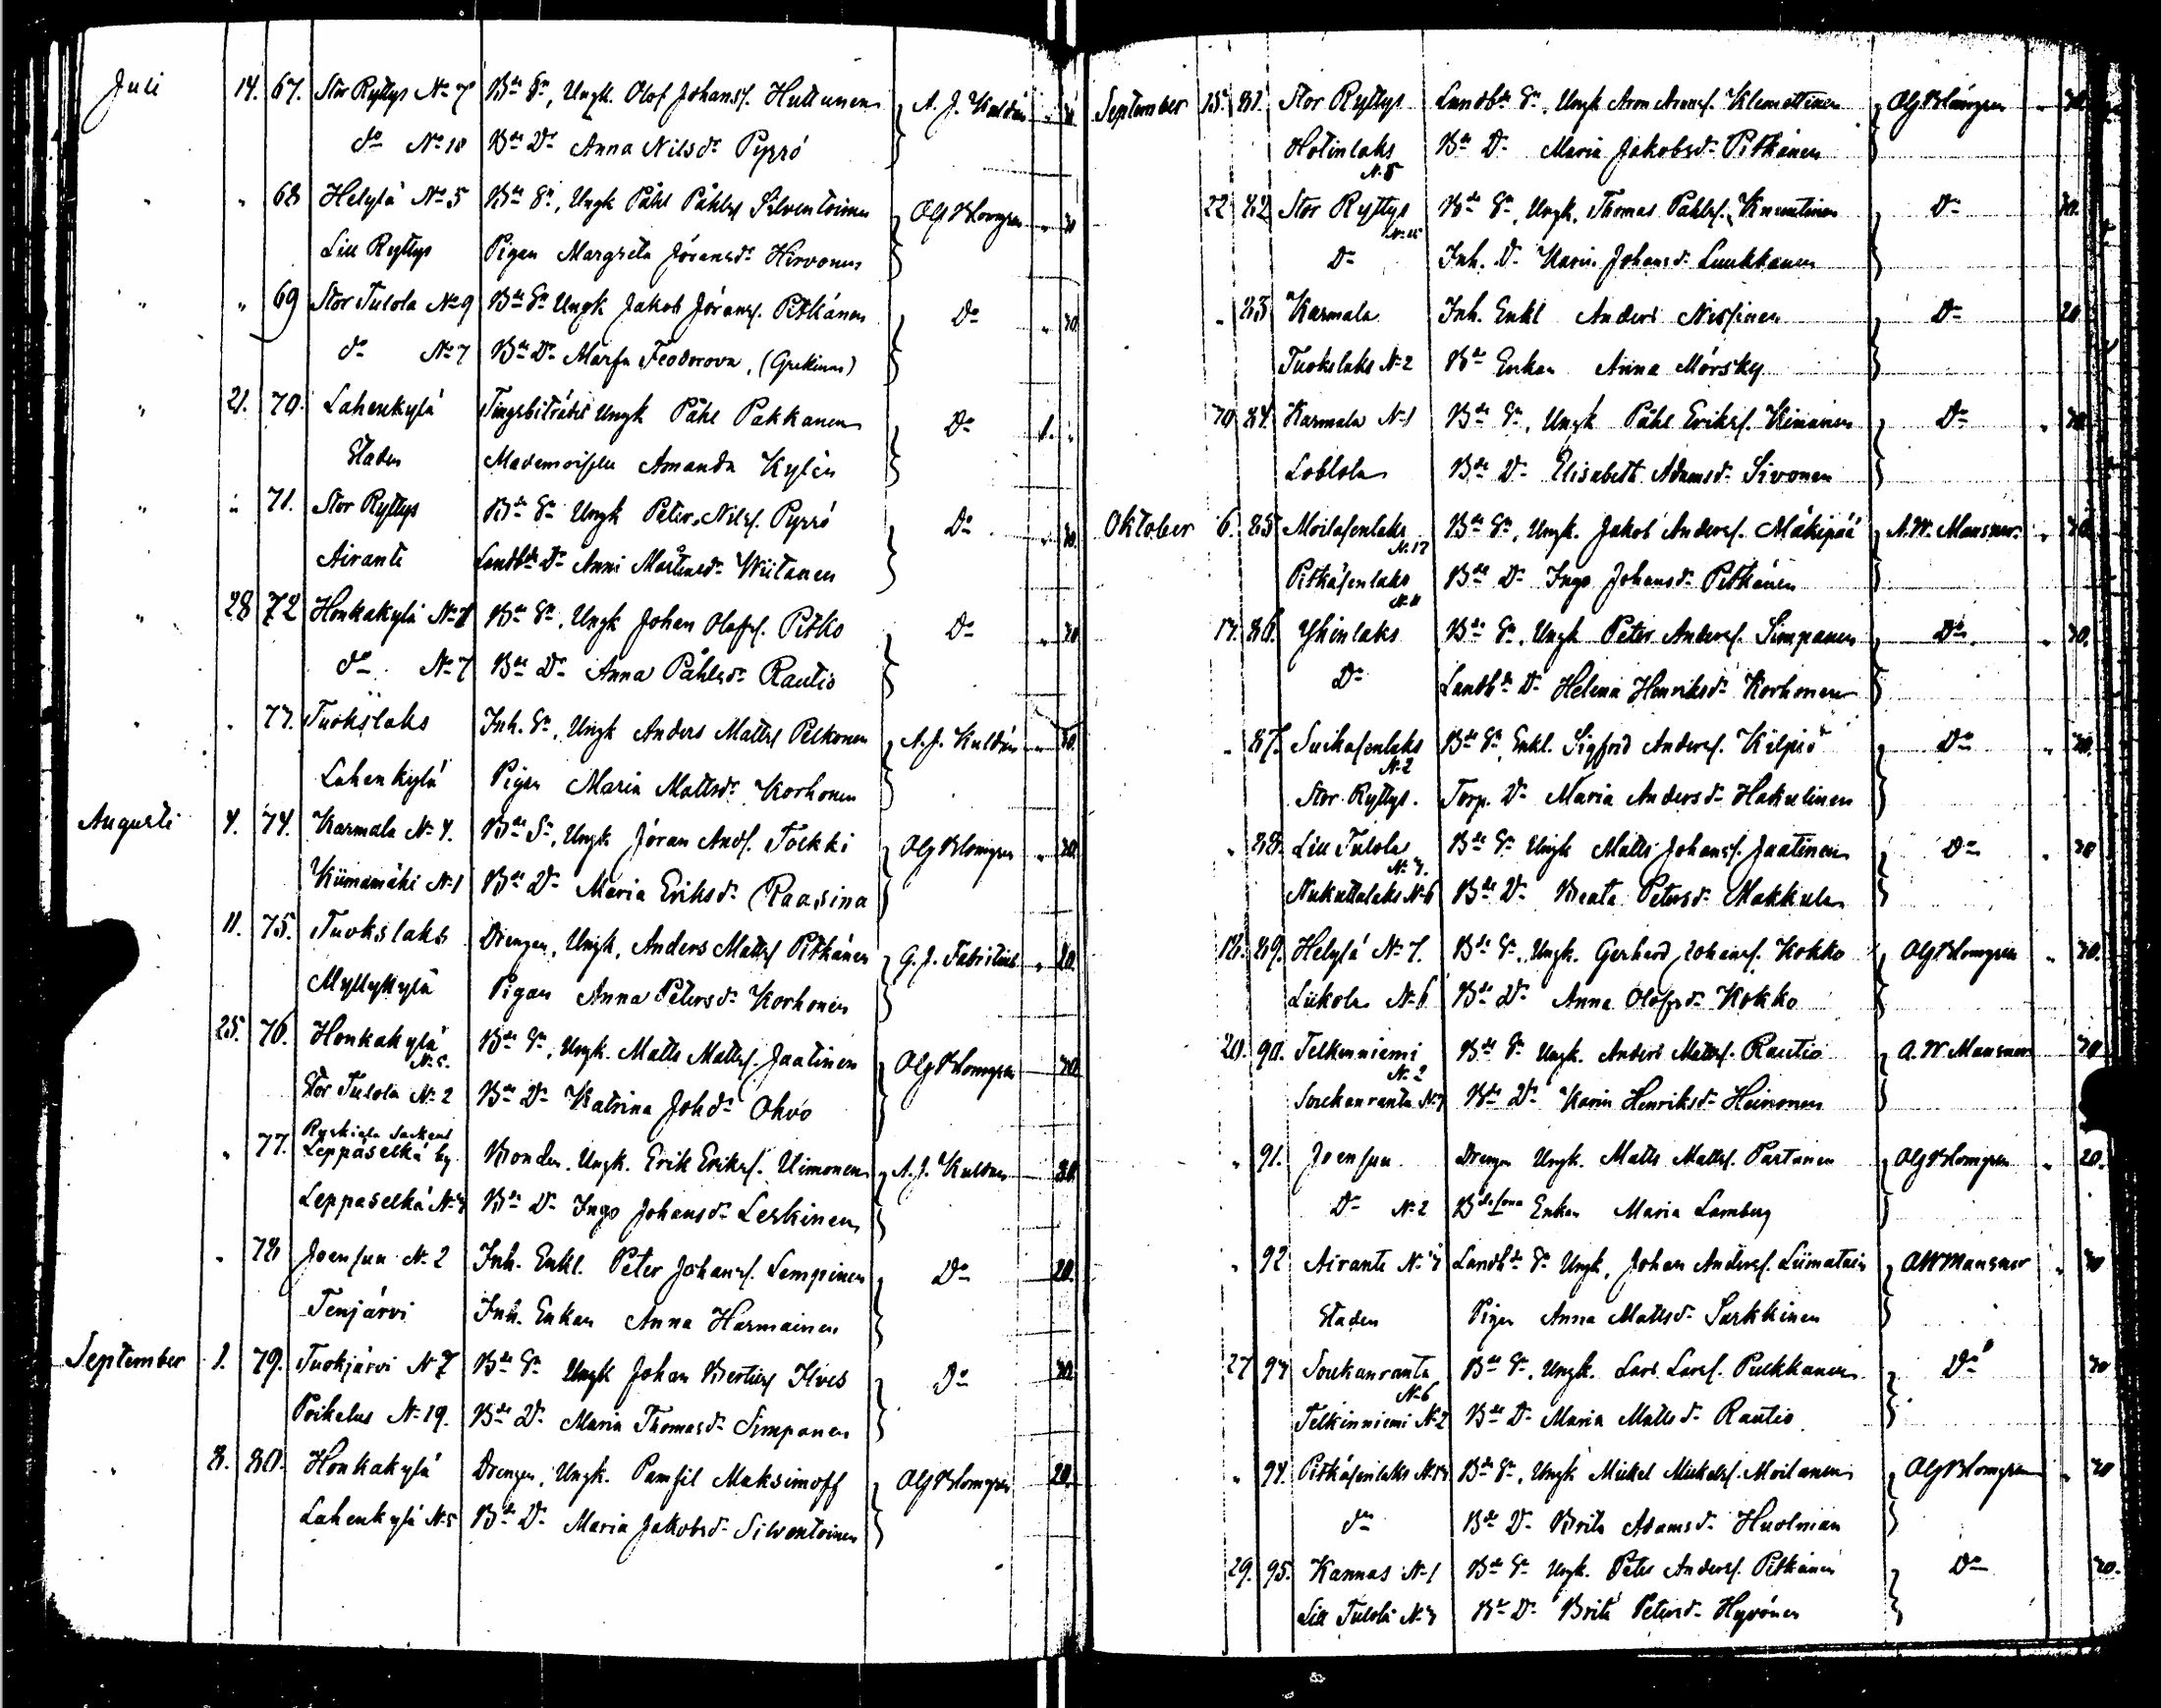 Juli 14. 67. Stor Ryttys No 7 Bde Sn, Ungk. Olof Johansf. Huttunen A. J. Kuldén 30
do No 18 Bde Dr Anna Nilsdr Pyrrö
" " 68 Helylä No 5 Bde Sn, Ungk Påhl Påhlsf Silventoinen Olf Blomgren " 30
Lill Ryttys Pigan Margreta Jöransdr Hirvonen
" " 69 Stor Tulola No 9 Bde Sn Ungk Jakob Jöransf. Pitkänen Do " 30
do No 7 Bde Dr Marfa Feodorova, (Grekinna)
" 21. 70. Lahenkylä Tingsbiträdet Ungk Påhl Pakkanen Do 1. "
Staden Mademoiselle Amanda Kylén
" " 71. Stor Ryttys Bde Sn Ungk Peter Nilsf. Pyrrö Do " 30.
Airante Landbde Dr Anni Mårtensdr Wiitanen
" 28 72 Honkakylä No Bde Sn, Ungk Johan Olofsf. Pitko Do " 30
do No 7 Bde Dr Anna Påhlsdr Rautio
" " 73. Tuokslaks Inh. Sn, Ungk Anders Mattsf Pelkonen A. J. Kuldén 30.
Lahenkylä Pigan Maria Mattsdr Korhonen
Augusti 4. 74. Karmala No 4. Bde Sn, Ungk Jöran Andf. Tolkki Olf Blomgren " 30.
Kiimamäki No 1 Bde Dr Maria Eriksdr Raasina
11. 75. Tuokslaks Drengen, Ungk, Anders Mattsf Pitkänen G. J. Fabritius " 20.
Myllykylä Pigan Anna Petersdr Korhonen
25. 76. Honkakylä No 5. Bde Sn, Ungk. Matts Mattsf. Jaatinen Olf Blomgren 30
Stor Tulola No 2 Bde Dr Katrina Johdr Ohvo
" 77. Ruskiala Sockens Leppäselkä by Bonden, Ungk. Erik Eriksf. Uimonen A. J. Kuldén 30
Leppäselkä No 3 Bde Dr Ingo Johansdr Leskinen
" 78 Joensuu No 2 Inh. Enkl. Peter Johansf. Lempinen Do 20.
Tenjärvi Inh. Enkan Anna Harmainen
September 1. 79. Tuokjärvi No 7 Bde Sn Ungk Johan Bertilsf Ilves Do 30.
Poikelus No 19. Bde Dr Maria Thomasdr Simpanen
" 8. 80. Honkakylä Drengen, Ungk. Pamfil Maksimoff Olf Blomgren 20.
Lahenkylä No 5 Bde Dr Maria Jakobsdr Silventoinen
September 15. 81. Stor Ryttys Landbde Sn, Ungk Aron Aronsf. Klemettinen Olf Blomgren " 30
Hotinlaks No 8 Bde Dr Maria Jakobsdr Pitkänen
22. 82 Stor Ryttys Bde Sn, Ungk. Thomas Påhlsf. Knuutinen Do 30.
Do Inh. Dr Karin Johansdr Luukkanen
" 83 Karmala Inh. Enkl Anders Nissinen Do 20
Tuokslaks No 2 Bde Enkan Anna Mörsky
30 84. Karmala No 1 Bde Sn, Ungk Påhl Eriksf. Kinanen Do " 30
Loblola Bde Dr Elisabeth Adamsdr Sivonen
Oktober 6. 85 Moilasenlaks No 12 Bde Sn, Ungk. Jakob Andersf. Mäkipää A. W. Mansner " 30
Pitkäsenlaks Bde Dr Ingo Johansdr Pitkänen
13. 86. Yhinlaks Bde Sn, Ungk Peter Andersf. Simpanen Do " 30.
Do Landbde Dr Helena Henriksdr Korhonen
" 87. Suikasenlaks No 2 Bde Sn, Enkl. Sigfrid Andersf. Kilpiö Do " 30.
Stor Ryttys. Torp. Dr Maria Andersdr Hakulinen
" 88. Lill Tulola Bde Sn Ungk Matts Johansf. Jaatinen Do " 30
Nukuttalaks No 6 Bde Dr Beata Petersdr Makkula
18. 89. Helylä No 7. Bde Sn, Ungk. Gerhard Johansf. Kokko Olf Blomgren " 30.
Liikola No 6 Bde Dr Anna Olofsdr Kokko
20. 90. Telkinniemi No 2 Bde Sn Ungk. Anders Mattsf. Rautio A. W. Mansner 30
Soukanranta Bde Dr Karin Henriksdr Heinonen
" 91. Joensuu Drengen Ungk. Matts Mattsf. Partanen Olf Blomgren " 20.
Do No 2 Enkan Maria Lamberg
" 92 Airante No 3 Landbde Sn Ungk, Johan Andersf. Liimatain A W Mansner " 30
Staden Pigan Anna Mattsdr Sarkkinen
27 93 Soukanranta No 6 Bde Sn, Ungk. Lars Larsf. Pulkkanen Do 30
Telkinniemi No 2 Bde Dr Maria Mattsdr Rautio
" 94. Pitkäsenlaks Bde Sn, Ungk Mickel Mickelsf. Moilanen Olf Blomgren " 30
do Bde Dr Brita Adamsdr Huolman
29. 95. Kannas No 1 Bde Sn Ungk. Peter Andersf. Pitkänen Do 30.
Lill Tulola No 3 Bde Dr Brita Petersdr Hyvönen